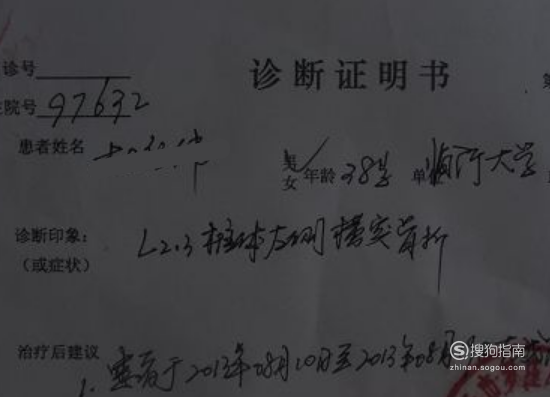 诊断证明书 第
诊号
院号 97632
患者姓名
男 女 年龄 38岁 单 大学
诊断印象： L2.3 椎体左侧横突骨折
（或症状）
治疗后建议
1. 患者于2013年08月10日至2013年08月
搜狗指南
zhinan.sogou.com